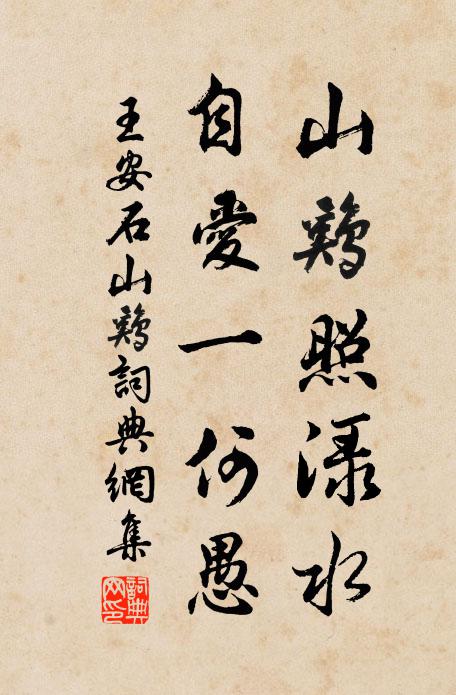 山鷄照淥水
自愛一何愚
王安石山鷄詞典網集
詞典网印